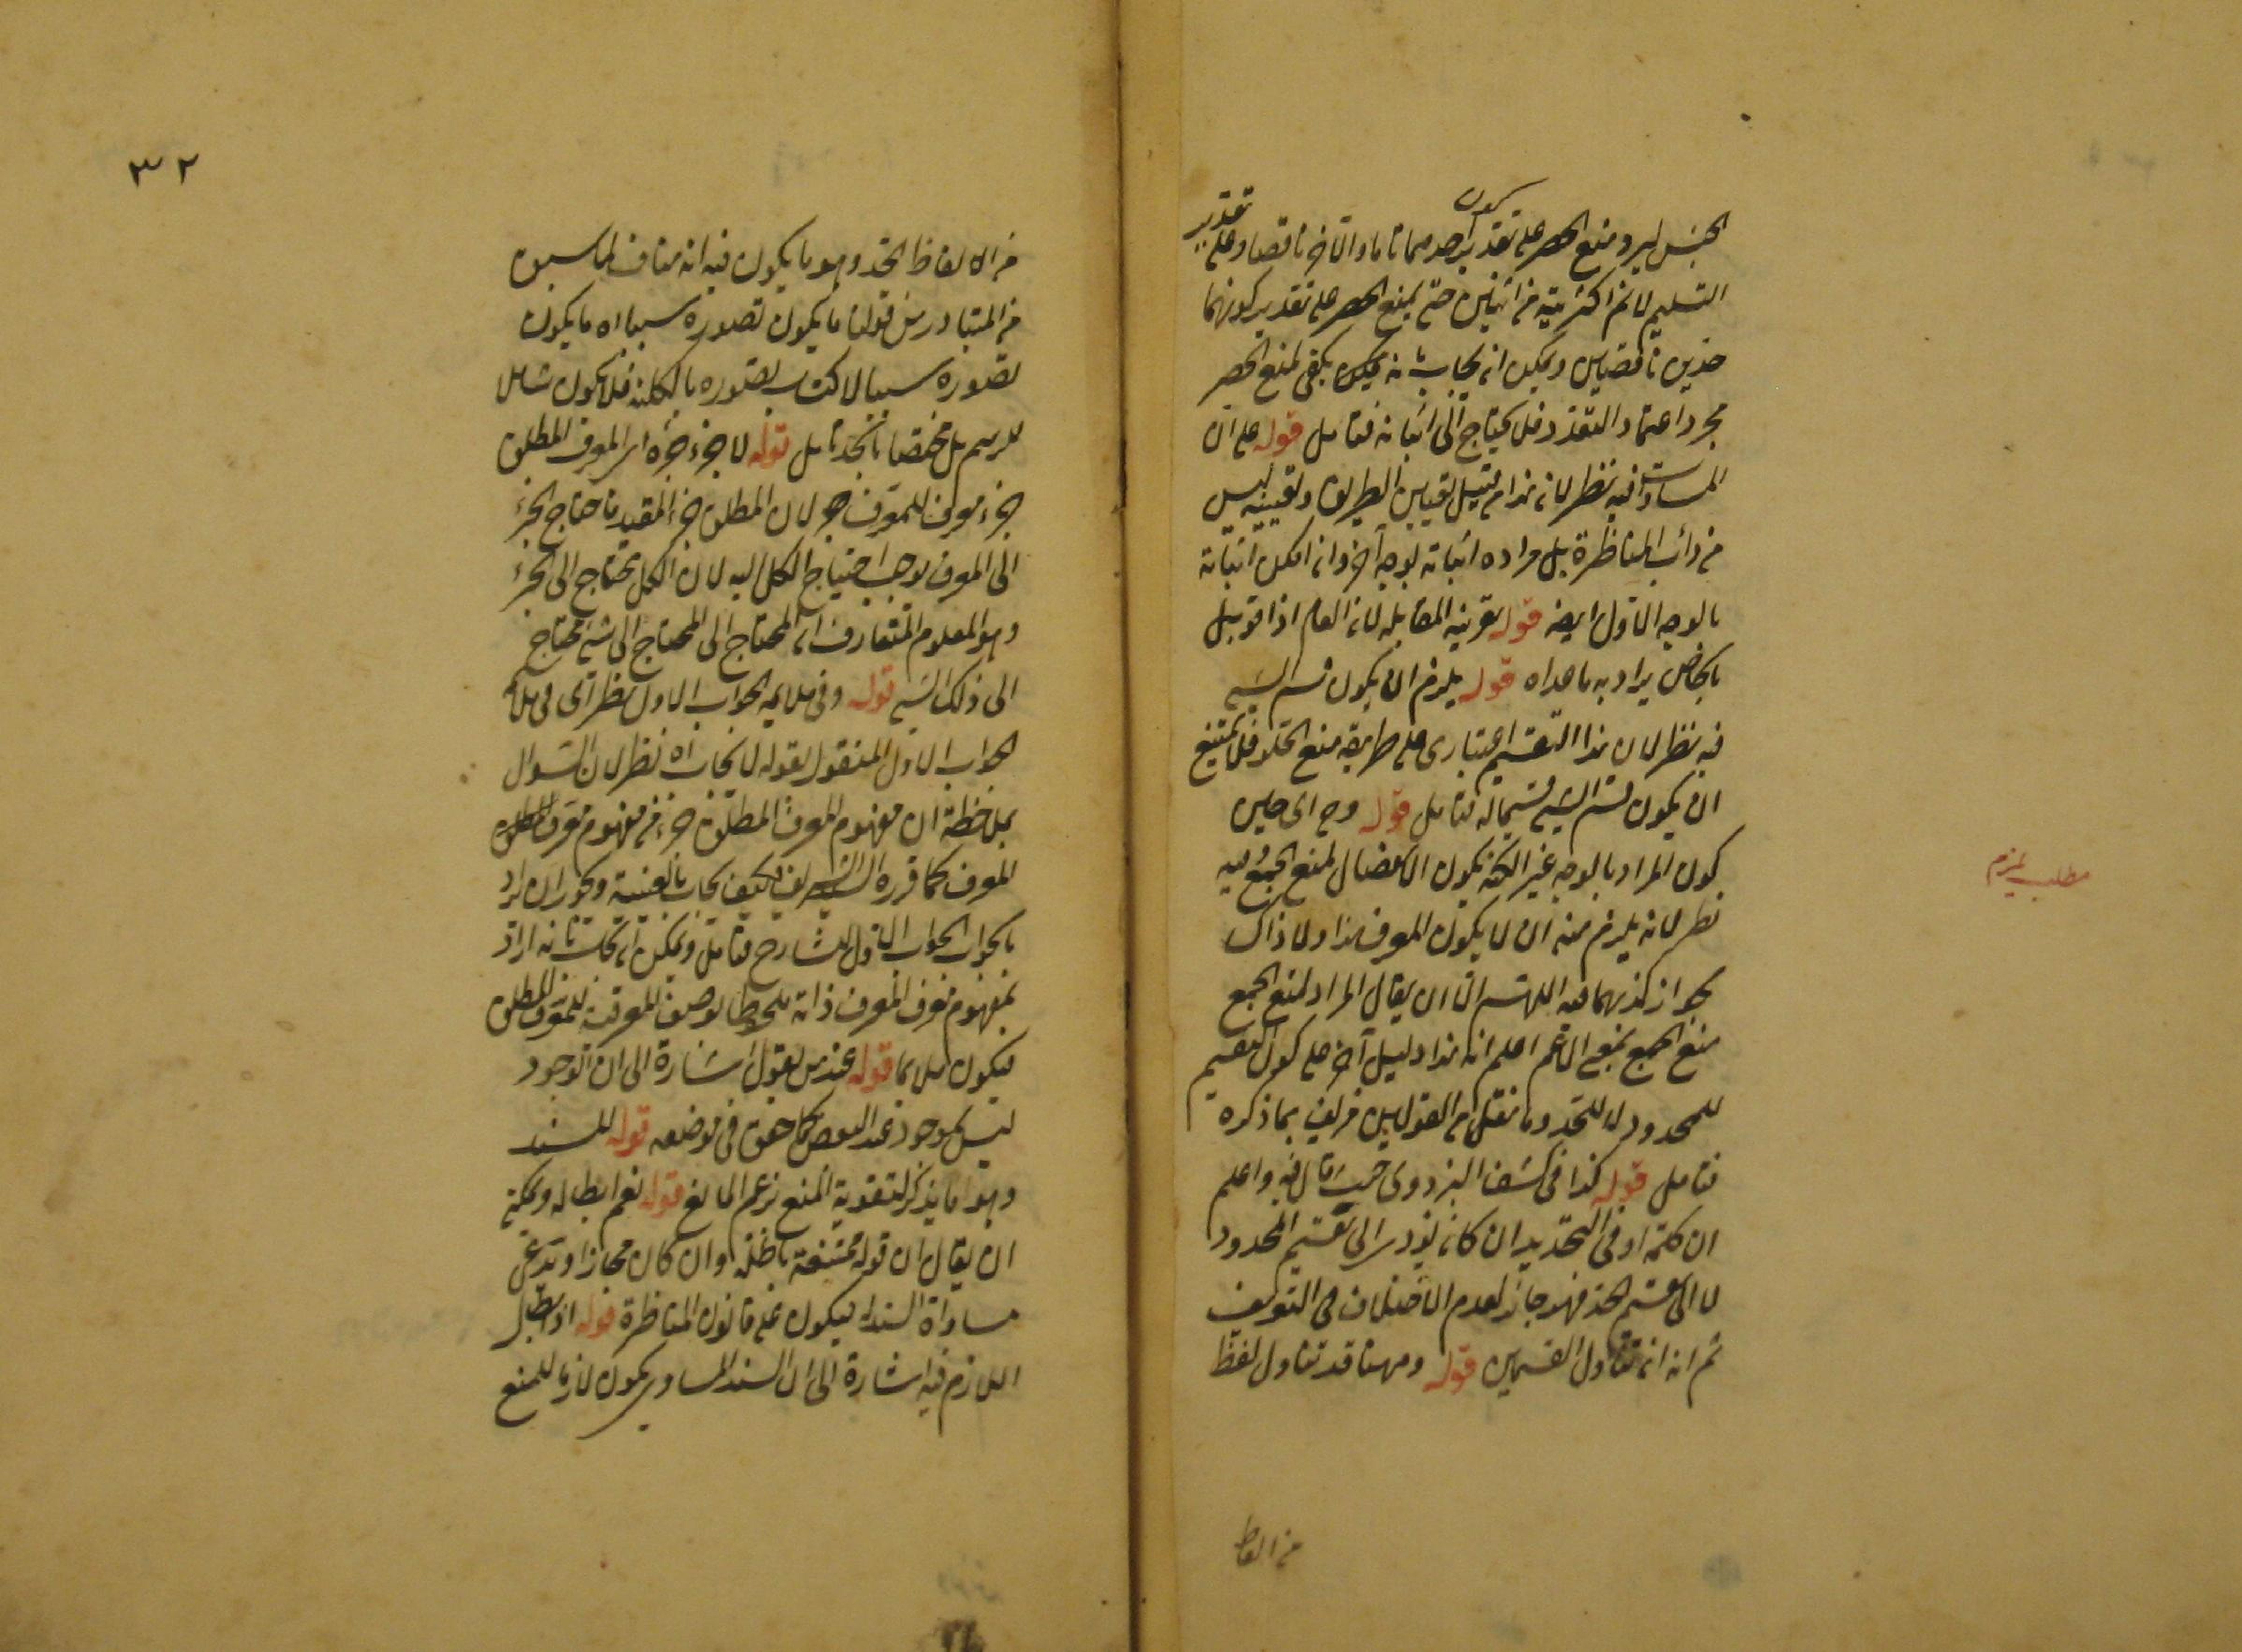 كون
الجنس ليرد منع الحصر على تقدير احدهما تاما والآخر ناقصا وعلى تقدير
التسليم لا نم اكثريته من اثنين حتى يمنع الحصر على تقدير كونهما
حدين ناقصين ويمكن ان يجاب بانه يكفى لمنع الحصر
مجرد اعتماد التعدد فلا يحتاج الى اثباته فتأمل قوله على ان
المساواة فيه نظر لان هذا من قبيل تعيين الطريق وتعيينه ليس
من دأب المناظرة بل مراده اثباته بوجه آخر وان امكن اثباته
بالوجه الاول ايضا قوله بقرينة المقابلة لان العام اذا قوبل
بالخاص يراد به ما عداه قوله يلزم ان يكون قسم الشئ
فيه نظر لان هذا التقسيم اعتبارى على طريقة منع الخلو فلا يمتنع
ان يكون قسم الشئ قسيما له فتأمل قوله وح اى حين
كون المراد بالوجه غير الكنه يكون الانفصال لمنع الجمع فيه
نظر لانه يلزم منه ان لا يكون المعرف هذا ولا ذاك
بجواز كذبهما فيه اللهم الا ان يقال المراد لمنع الجمع
منع الجمع بمعنى الاعم اعلم انه هذا دليل آخر على كون التقسيم
للمحدود لا للحد وما نقل من القولين مزيف بما ذكره
فتأمل قوله كذا فى كشف البزدوى حيث قال فيه واعلم
ان كلمة او فى التحديد ان كان يؤدى الى تقسيم المحدود
لا الى تقسيم الحد فهو جائز لعدم الاختلاف فى التعريف
ثم انه ان تناول القسمين قوله وههنا قد تناول لفظ
من الفاظ
مطلب يلزم
٣٢
من الالفاظ الحد وهو ما يكون فيه انه مناف لما سبق
من المتبادر من قولنا ما يكون تصوره سببا اه ما يكون
تصوره سببا لاكتساب تصوره بالكنه فلا يكون شاملا
للرسم بل مختصا بالحد تأمل قوله لا جزء جزءه اى المعرف المطلق
جزء معرف للمعرف جزء لان المطلق جزء المقيد فاحتياج الجزء
الى المعرف يوجب احتياج الكل اليه لان الكل يحتاج الى الجزء
وهو المعلوم المتعارف ان المحتاج الى المحتاج الى شئ محتاج
الى ذلك الشئ قوله وفى ملايمة الجواب الاول نظر اى فى ملايمة
الجواب الاول المنقول لقوله لا يجاب اه نظر لان السؤال
بملاحظة ان مفهوم المعرف المطلق جزء من مفهوم معرف المطلق
المعرف كما قرره الشريف فكيف يجاب بالعينية ويجوز ان يراد
بالجواب الجواب الاول للشارح فتأمل ويمكن ان يجاب بانه اراد
بمفهوم معرف المعرف ذاته ملحوظا بوصف المعرفية للمعرف المطلق
فيكون ملايما قوله عند من يقول اشارة الى ان الوجود
ليس بموجود عند البعض كما حقق فى موضعه قوله للسند
وهو ما يذكر لتقوية المنع بزعم المانع قوله نعم ابطاله ويمكن
ان يقال ان قوله ممتنعة باطلة وان كان مجازا وتدعى
مساواة السند فيكون على قانون المناظرة قوله اذ ابطال
اللازم فيه اشارة الى ان السند المساوى يكون لازما للمنع